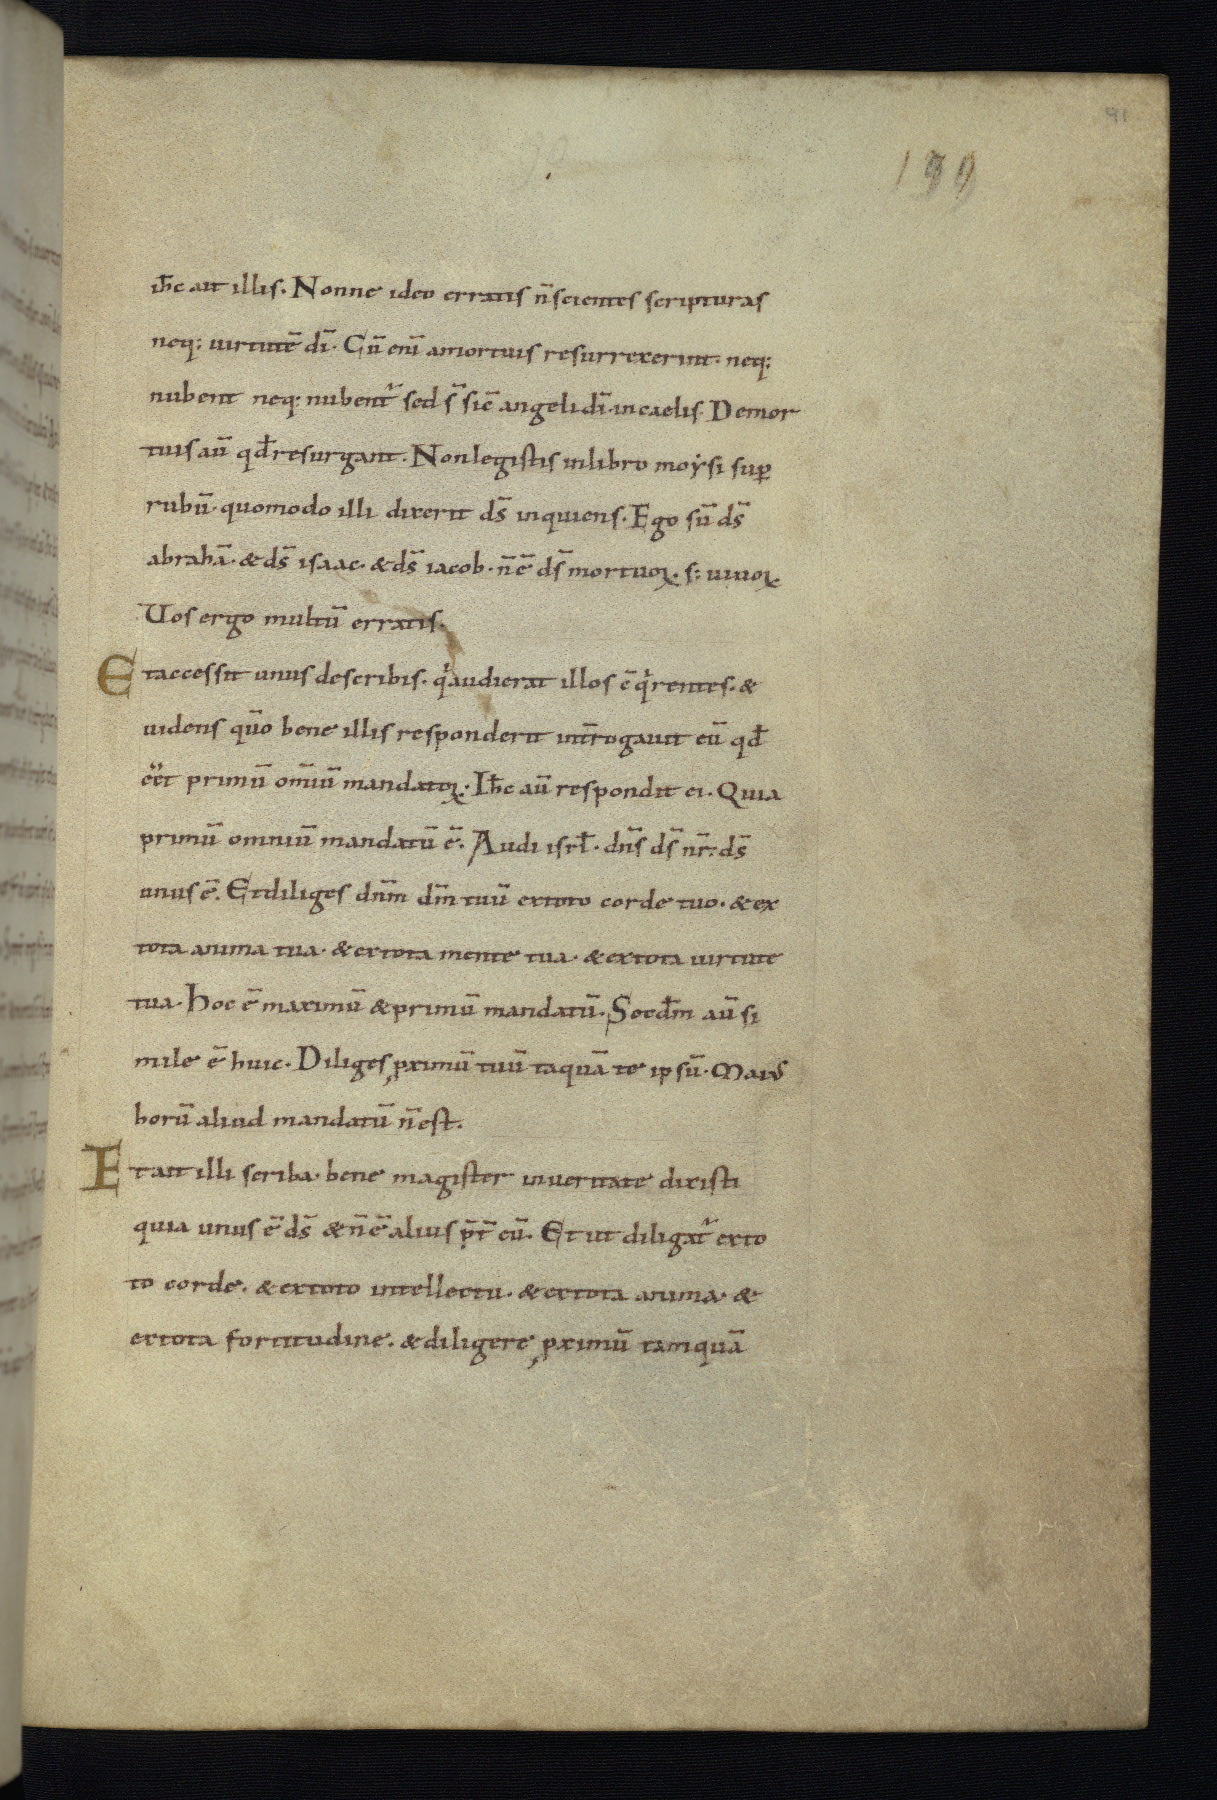 91
199
ih̄c ait illis. Nonne ideo erratis n̄ scientes scripturas
neq: uirtutē dī. Cū enī amortuis resurrexerint. neq:
nubent neq: nubent᷑ sed s̄ sic̄ angeli dī. incaelis. Demor
tuis aū qđ resurgant. Nonlegistis inlibro moẏsi suꝑ
rubū. quomodo illi dixerit dš inquiens. Ego sū dš
abrahā. & dš isaac. & dš iacob. n̄ ē dš mortuoꝝ. s: uiuoꝝ.
Uos ergo multū erratis.
Et accessit unus describis. qͥ audierat illos c̄qͥrentes. &
uidens quō bene illis responderit int̄rogauit eū qđ
eēt primū om̄iū mandatoꝝ. Ih̄c aū respondit ei. Quia
primū omniū mandatū ē. Audi isrł. dn̄s dš nr̄: dš
unus ē. Etdiliges dn̄m dm̄ tuū extoto corde tuo. & ex
tota anima tua. & extota mente tua. & extota uirtute
tua. hoc ē maximū & primū mandatū. Secdm̄ aū si
mile ē huic. Diliges ꝓximū tuū taquā te ipsū. Maiꝰ
horū aliud mandatū n̄ est.
Et ait illi scriba. bene magister inueritate dixisti
quia unus ē dš & n̄ ē alius p̄t̄ eū. Et ut diligat᷑ exto
to corde. & extoto intellectu. & extota anima. &
extota fortitudine. & diligere ꝓximū tamquā